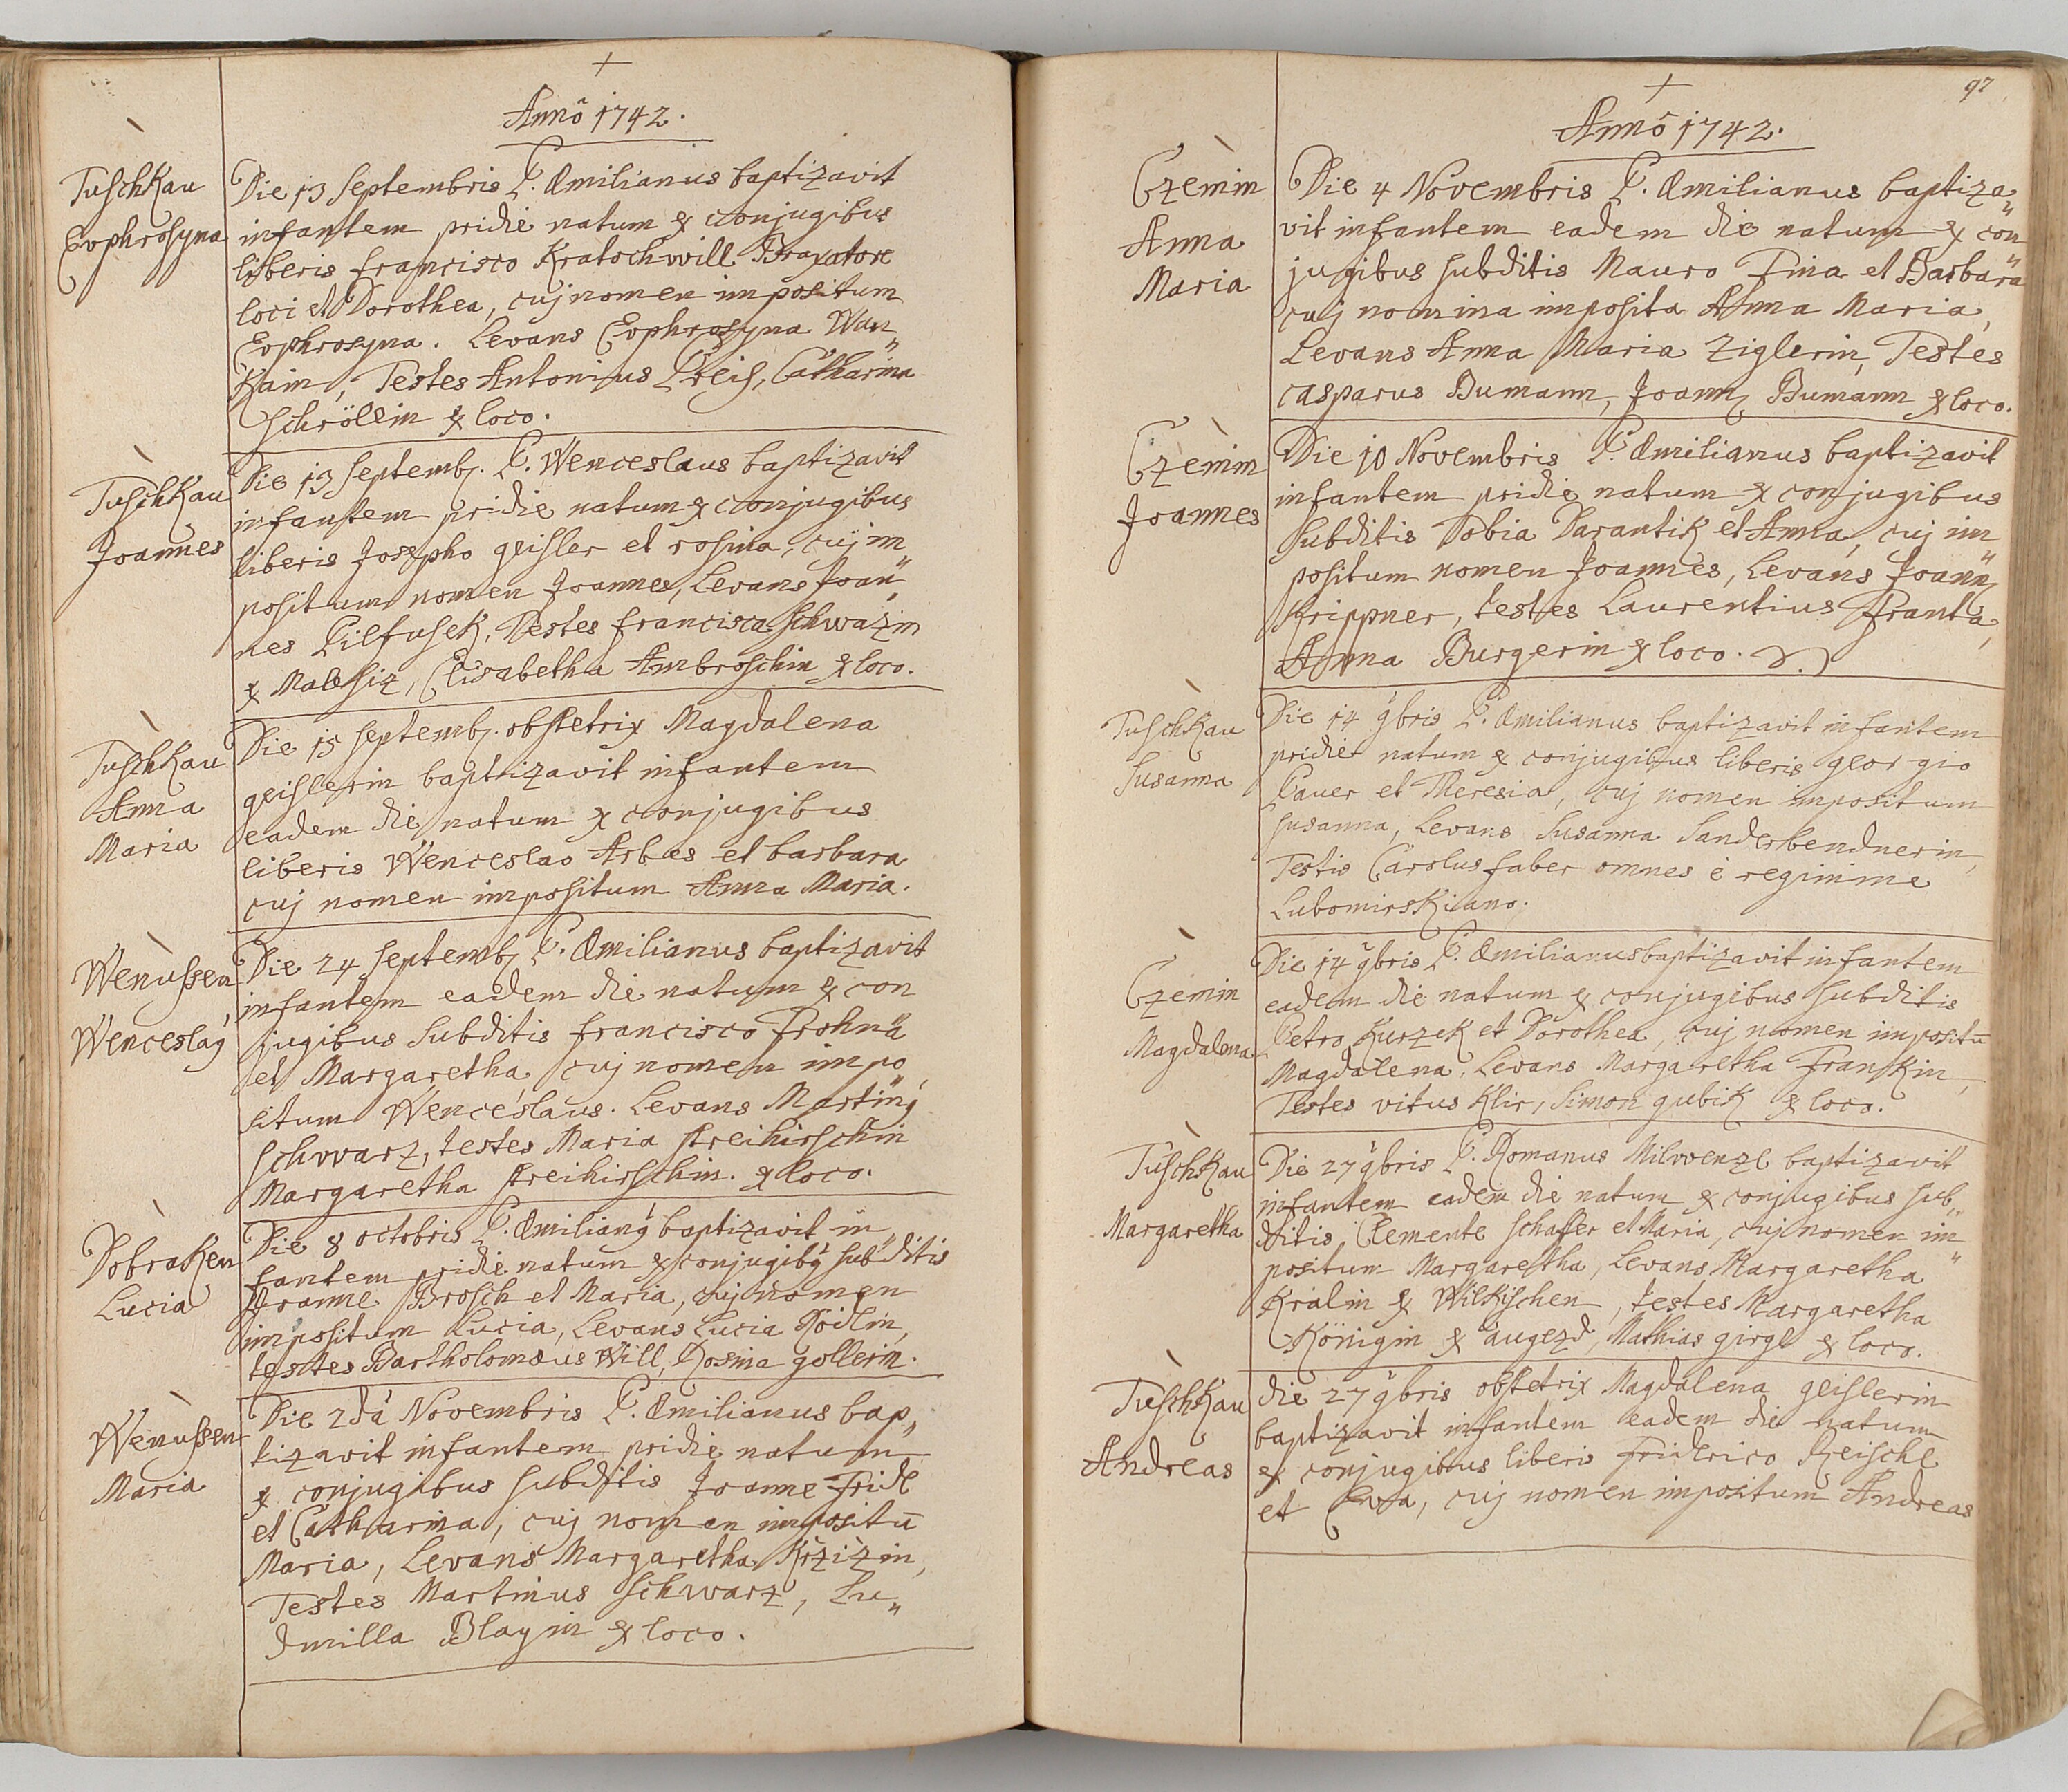 Annô 1742.
Tuschkau
Evphrosyna
Die 13 Septembris P. Æmilianus baptizavit
infantem pridie natum ex conjugibus
liberis francisco Kratochwill Braxatore
loci et Dorothea, cuj nomen impositum
Evphrosyna. Levans Evphrosyna Wan„
Kain, Testes Antonius Preis, Catharina
Schröllin ex loco.
Tuschkau
Joannes
Die 13 Septemb. P. Wenceslaus baptizavit
infantem pridie natum ex conjugibus
liberis Josepho geisler et rosina, cuj im„
positum nomen Joannes, Levans Joan„
nes Pilfusek, Testes francisca Schwazin
ex Malesiz, Elisabetha Ambroschin ex loco.
Tuschkau
Anna
Maria
Die 15 Septemb. obstetrix Magdalena
geislerin baptizavit infantem
eadem die natum ex conjugibus
liberis Wenceslao Arbes et barbara
cuj nomen impositum Anna Maria.
Wenussen
Wenceslaq
Die 24 Septemb. P. Æmilianus baptizavit
infantem eadem die natum ex con„
jugibus Subditis francisco Prohna
et Margaretha, cuj nomen impo„
situm Wenceslaus. Levans Martinq
Schwarz, testes Maria streihirschin
Margaretha streihirschin. ex loco.
Dobraken
Lucia
Die 8 octobris P. Æmilianq baptizavit in„
fantem pridie natum ex conjugibq subditis
Joanne Brosch et Maria, cuj nomen
impositum Lucia, Levans Lucia Rödlin,
testes Bartholomæus Will, Rosina gollerin.
Wenussen
Maria
Die 2dâ Novembris P. Æmilianus bap„
tizavit infantem pridie natum
ex conjugibus subditis Joanne Fridl
et Catharina, cuj nomen impositū
Maria, Levans Margaretha Krzizin,
Testes Martinus Schwarz, Lu„
dmilla Blayin ex loco.
97
Annô 1742.
Czemin
Anna
Maria
Die 4 Novembris P. Æmilianus baptiza„
vit infantem eadem die natum ex con„
jugibus subditis Mauro Fina et Barbara
cuj nomina imposita Anna Maria,
Levans Anna Maria Ziglerin, Testes
Casparus Bumann, Joann, Bumann ex loco.
Czemin
Joannes
Die 10 Novembris P. Æmilianus baptizavit
infantem pridie natum ex conjugibus
Subditis Tobia Tarantik et Anna, cuj im„
positum nomen Joannes, Levans Joann,
Krippner, testes Laurentius Franta,
Anna Burgerin ex loco.
Tuschkau
Susanna
Die 14 9bris P. Æmilianus baptizavit infantem
pridie natum ex conjugibus liberis georgio
Pauer et Theresia, cuj nomen impositum
Susanna, Levans Susanna Sanderbendnerin,
Testis Carolus faber omnes è regimine
Lubomirskiano.
Czemin
Magdalena
Die 14 9bris P. Æmilianus baptizavit infantem
eadem die natum ex conjugibus subditis
Petro Kurzek et Dorothea, cuj nomen impositū
Magdalena, Levans Margaretha Frankin,
Testes vitus Klir, Simon gubik ex loco.
Tuschkau
Margaretha
Die 27 9bris P. Romanus Milwenzl baptizavit
infantem eadem die natum ex conjugibus sub„
ditis Clemente Schaffer et Maria, cuj nomen im„
positum Margaretha, Levans Margaretha
Kralin ex Wilkischen, testes Margaretha
Königin ex augezd, Mathias girgl ex loco.
Tuschkau
Andreas
die 27 9bris obstetrix Magdalena geislerin
baptizavit infantem eadem die natum
ex conjugibus liberis friderico Reischl
et Eva, cuj nomen impositum Andreas